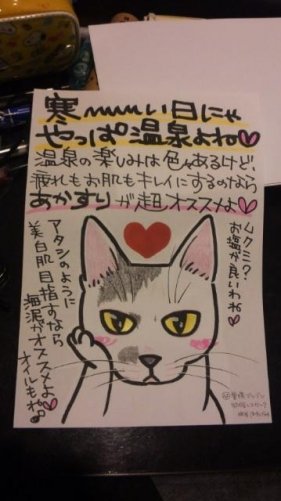 寒〰い日にゃ
やっぱ温泉よね♡
温泉の楽しみは色々あるけど、
疲れもお肌もキレイにするのなら
あかすりが超オススメよ♡
ムクミ?
お塩が良いわね♡
アタシのように
美白肌目指すなら
海泥がオススメよ
オイルもね♡